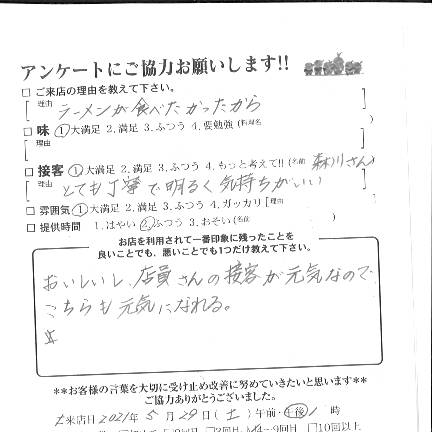 アンケートにご協力お願いします!!
□ ご来店の理由を教えて下さい。
[理由 ラーメンが食べたかったから ]
□ 味 ①大満足 2.満足 3.ふつう 4.要勉強 (料理名 )
[理由 ]
□ 接客 ①大満足 2.満足 3.ふつう 4.もっと考えて!! (名前 森川さん)
[理由 とても丁寧で明るく気持ちがいい ]
□ 雰囲気 ①大満足 2.満足 3.ふつう 4.ガッカリ [理由 ]
□ 提供時間 1.はやい ②ふつう 3.おそい (名前 )
お店を利用されて一番印象に残ったことを
良いことでも、悪いことでも1つだけ教えて下さい。
おいしいし、店員さんの接客が元気なので
こちらも元気になれる。
**お客様の言葉を大切に受け止め改善に努めていきたいと思います**
ご協力ありがとうございました。
ご来店日 2021年 5月 29日 (土) 午前・午後 時
3回目 4~9回目 □10回以上